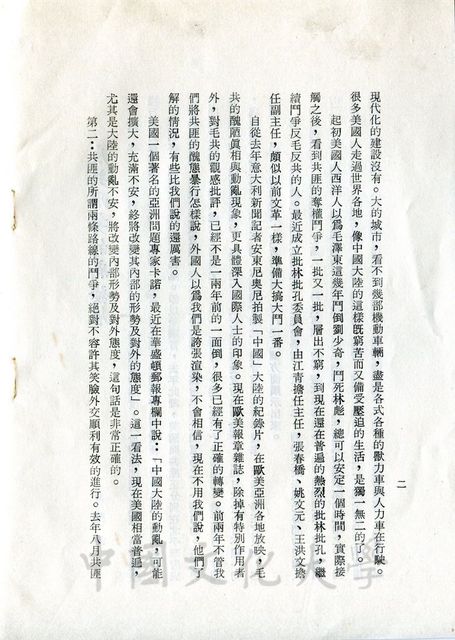 二
現代化的建設沒有。大的城市，看不到幾部機動車輛，盡是各式各種的獸力車與人力車在行駛。
很多美國人走過世界各地，像中國大陸的這樣既窮苦而又備受壓迫的生活，是獨一無二的了。
起初美國人西洋人以為毛澤東這幾年鬥倒劉少奇，鬥死林彪，總可以安定一個時間，實際接
觸之後，看到共匪的奪權鬥爭，一批又一批，層出不窮，到現在還在普遍的熱烈的批林批孔，繼
續鬥爭反毛反共的人。最近成立批林批孔委員會，由江青擔任主任，張春橋、姚文元、王洪文擔
任副主任，頗似以前文革一樣，準備大搞大鬥一番。
自從去年意大利新聞記者安東尼奧尼拍製「中國」大陸的紀錄片，在歐美亞洲各地放映，毛
共的醜陋眞相與動亂現象，更具體深入國際人士的印象。現在歐美報章雜誌，除掉有特別作用者
外，對毛共的觀感批評，已經不是一兩年前的一面倒，很多已經有了正確的轉變。前兩年不管我
們將共匪的醜態暴行怎樣說，外國人以爲我們是誇張渲染，不會相信，現在不用我們說，他們了
解的情況，有些比我們說的還厲害。
美國一個著名的亞洲問題專家卡諾，最近在華盛頓郵報專欄中說：「中國大陸的動亂，可能
還會擴大，充滿不安，終將改變其內部的形勢及對外的態度」。這一看法，現在美國相當普遍，
尤其是大陸的動亂不安，將改變內部形勢及對外態度，這句話是非常正確的。
第二：共匪的所謂兩條路線的鬥爭，絕對不容許其笑臉外交順利有效的進行。去年八月共匪
中國文化大學